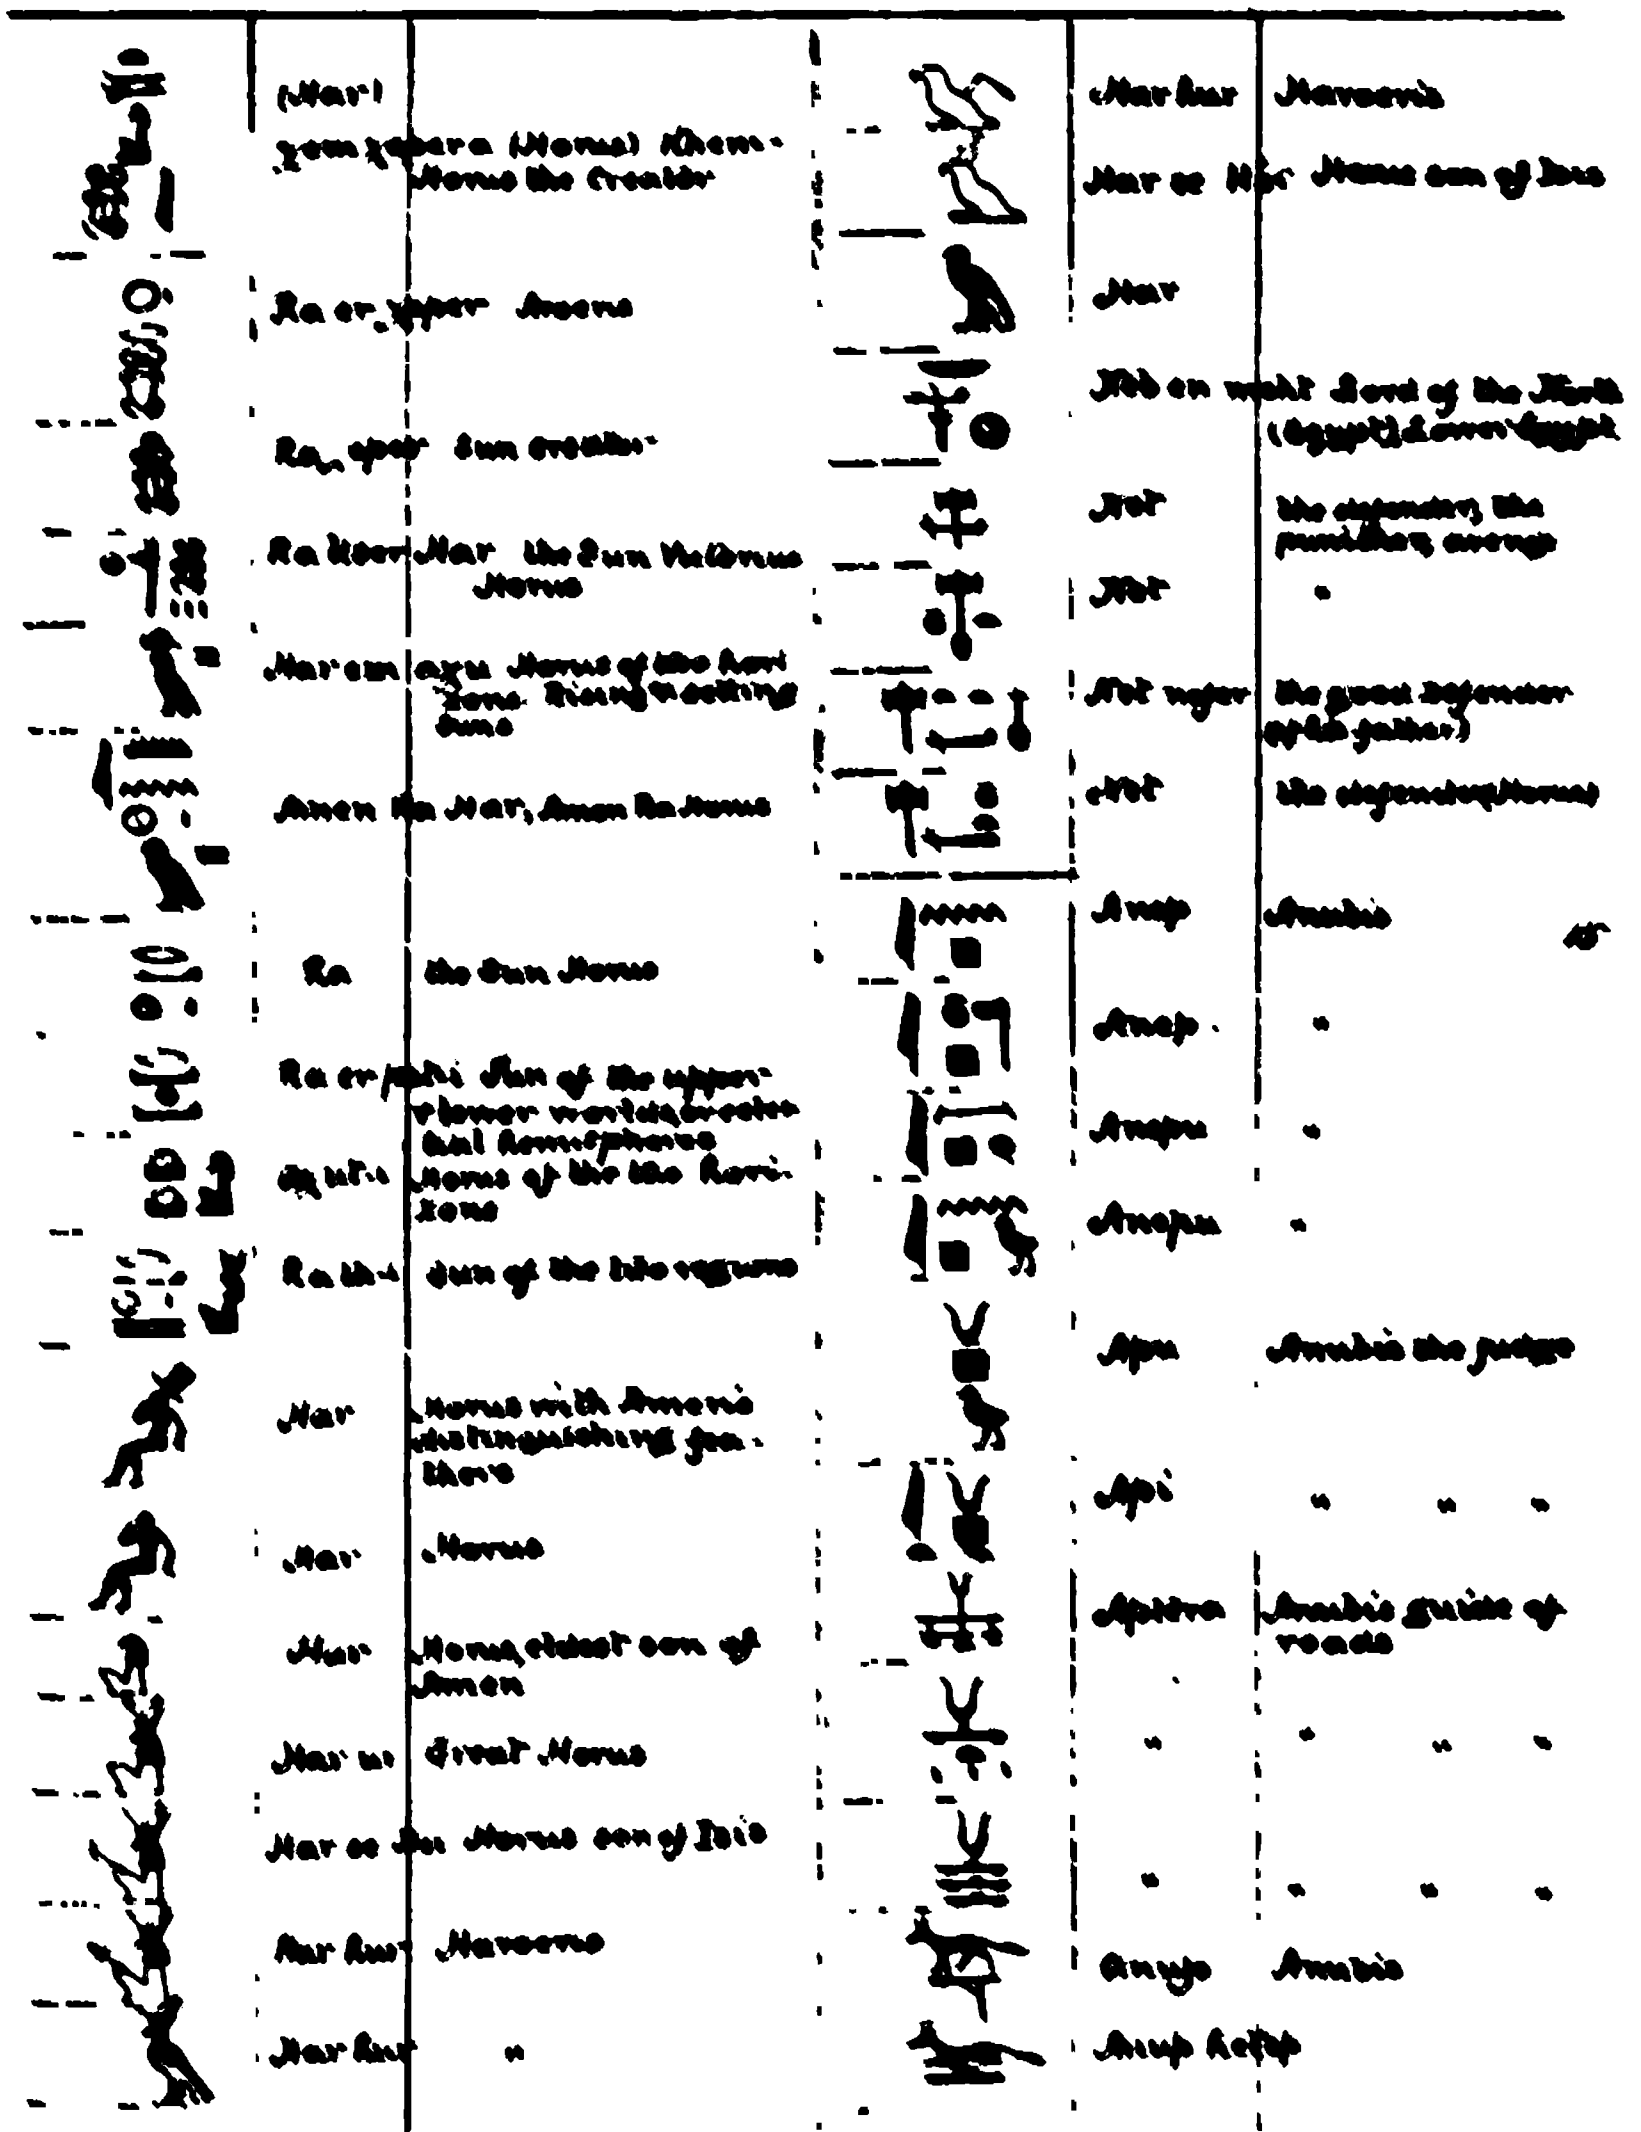 (Har)
(Horus) Khem-
Horus the Creator
Ra er xeper Areeris
Ra xeper Sun creator
Ra User Har the Sun Victorius
Horus
Har em axu Horus of the hori
zons Rising & setting
Suns
Amen Ra Har, Amon Ra Horus
Ra the Sun Horus
Ra er Sun of the upper
& lower
Horus of the the hori-
zons
Ra Sun of the two regions
Har Horus with Amen's
distinguishing fea-
thers
Har Horus
Har Horus, eldest son of
Amen
Har ur Great Horus
Har se Horus son of Isis
Har hur Haroeris
Har hur "
Har hur Haroeris
Har se Horus son of Isis
Har
Neb en meht Lord of the North
(Egypt) Lower Egypt
Not the defender, the
punisher,
Not "
Not nefer the good defender
of his father)
Not the defender (Horus)
Anep Anubis
Anep "
Anepu "
Anepu "
Apu Anubis the judge
Api " " "
Anubis guide of
roads
" " " "
" " " "
Anup Anubis
Anup hetep